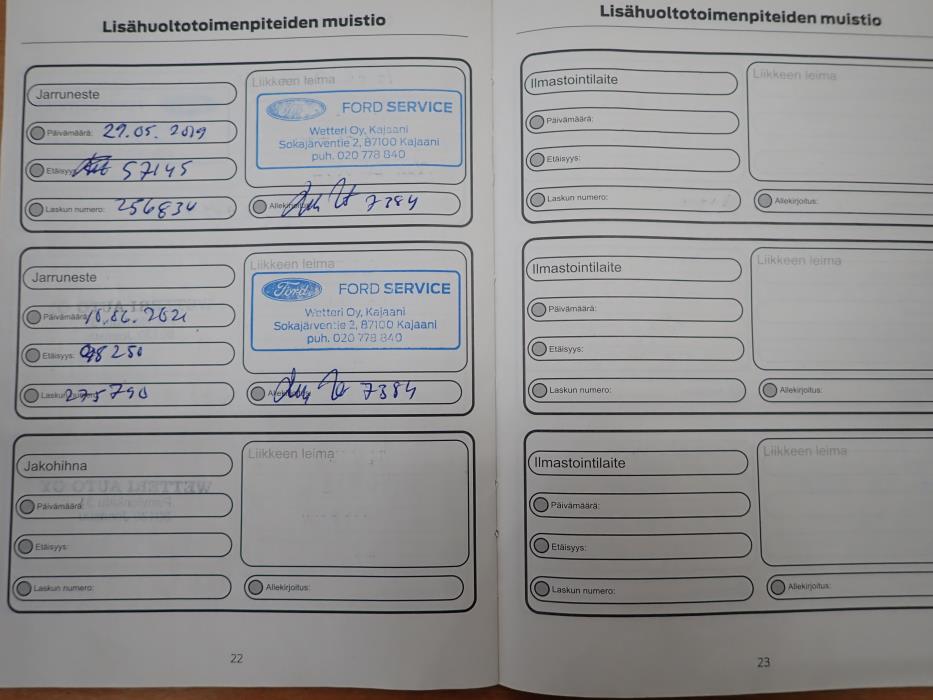 Lisähuoltotoimenpiteiden muistio
Jarruneste
Päivämäärä: 29.05.2019
Etäisyys: 57145
Laskun numero: 256834
Liikkeen leima
Ford
FORD SERVICE
Wetteri Oy, Kajaani
Sokajärventie 2, 87100 Kajaani
puh. 020 778 840
Allekirjoitus: 7384
Jarruneste
Päivämäärä: 10.06.2021
Etäisyys: 98250
Laskun numero: 275790
Liikkeen leima
Ford
FORD SERVICE
Wetteri Oy, Kajaani
Sokajärventie 2, 87100 Kajaani
puh. 020 778 840
7384
Jakohihna
Päivämäärä:
Etäisyys:
Laskun numero:
Liikkeen leima
Allekirjoitus:
22
Lisähuoltotoimenpiteiden muistio
Ilmastointilaite
Päivämäärä:
Etäisyys:
Laskun numero:
Liikkeen leima
Allekirjoitus:
Ilmastointilaite
Päivämäärä:
Etäisyys:
Laskun numero:
Liikkeen leima
Allekirjoitus:
Ilmastointilaite
Päivämäärä:
Etäisyys:
Laskun numero:
Liikkeen leima
Allekirjoitus:
23